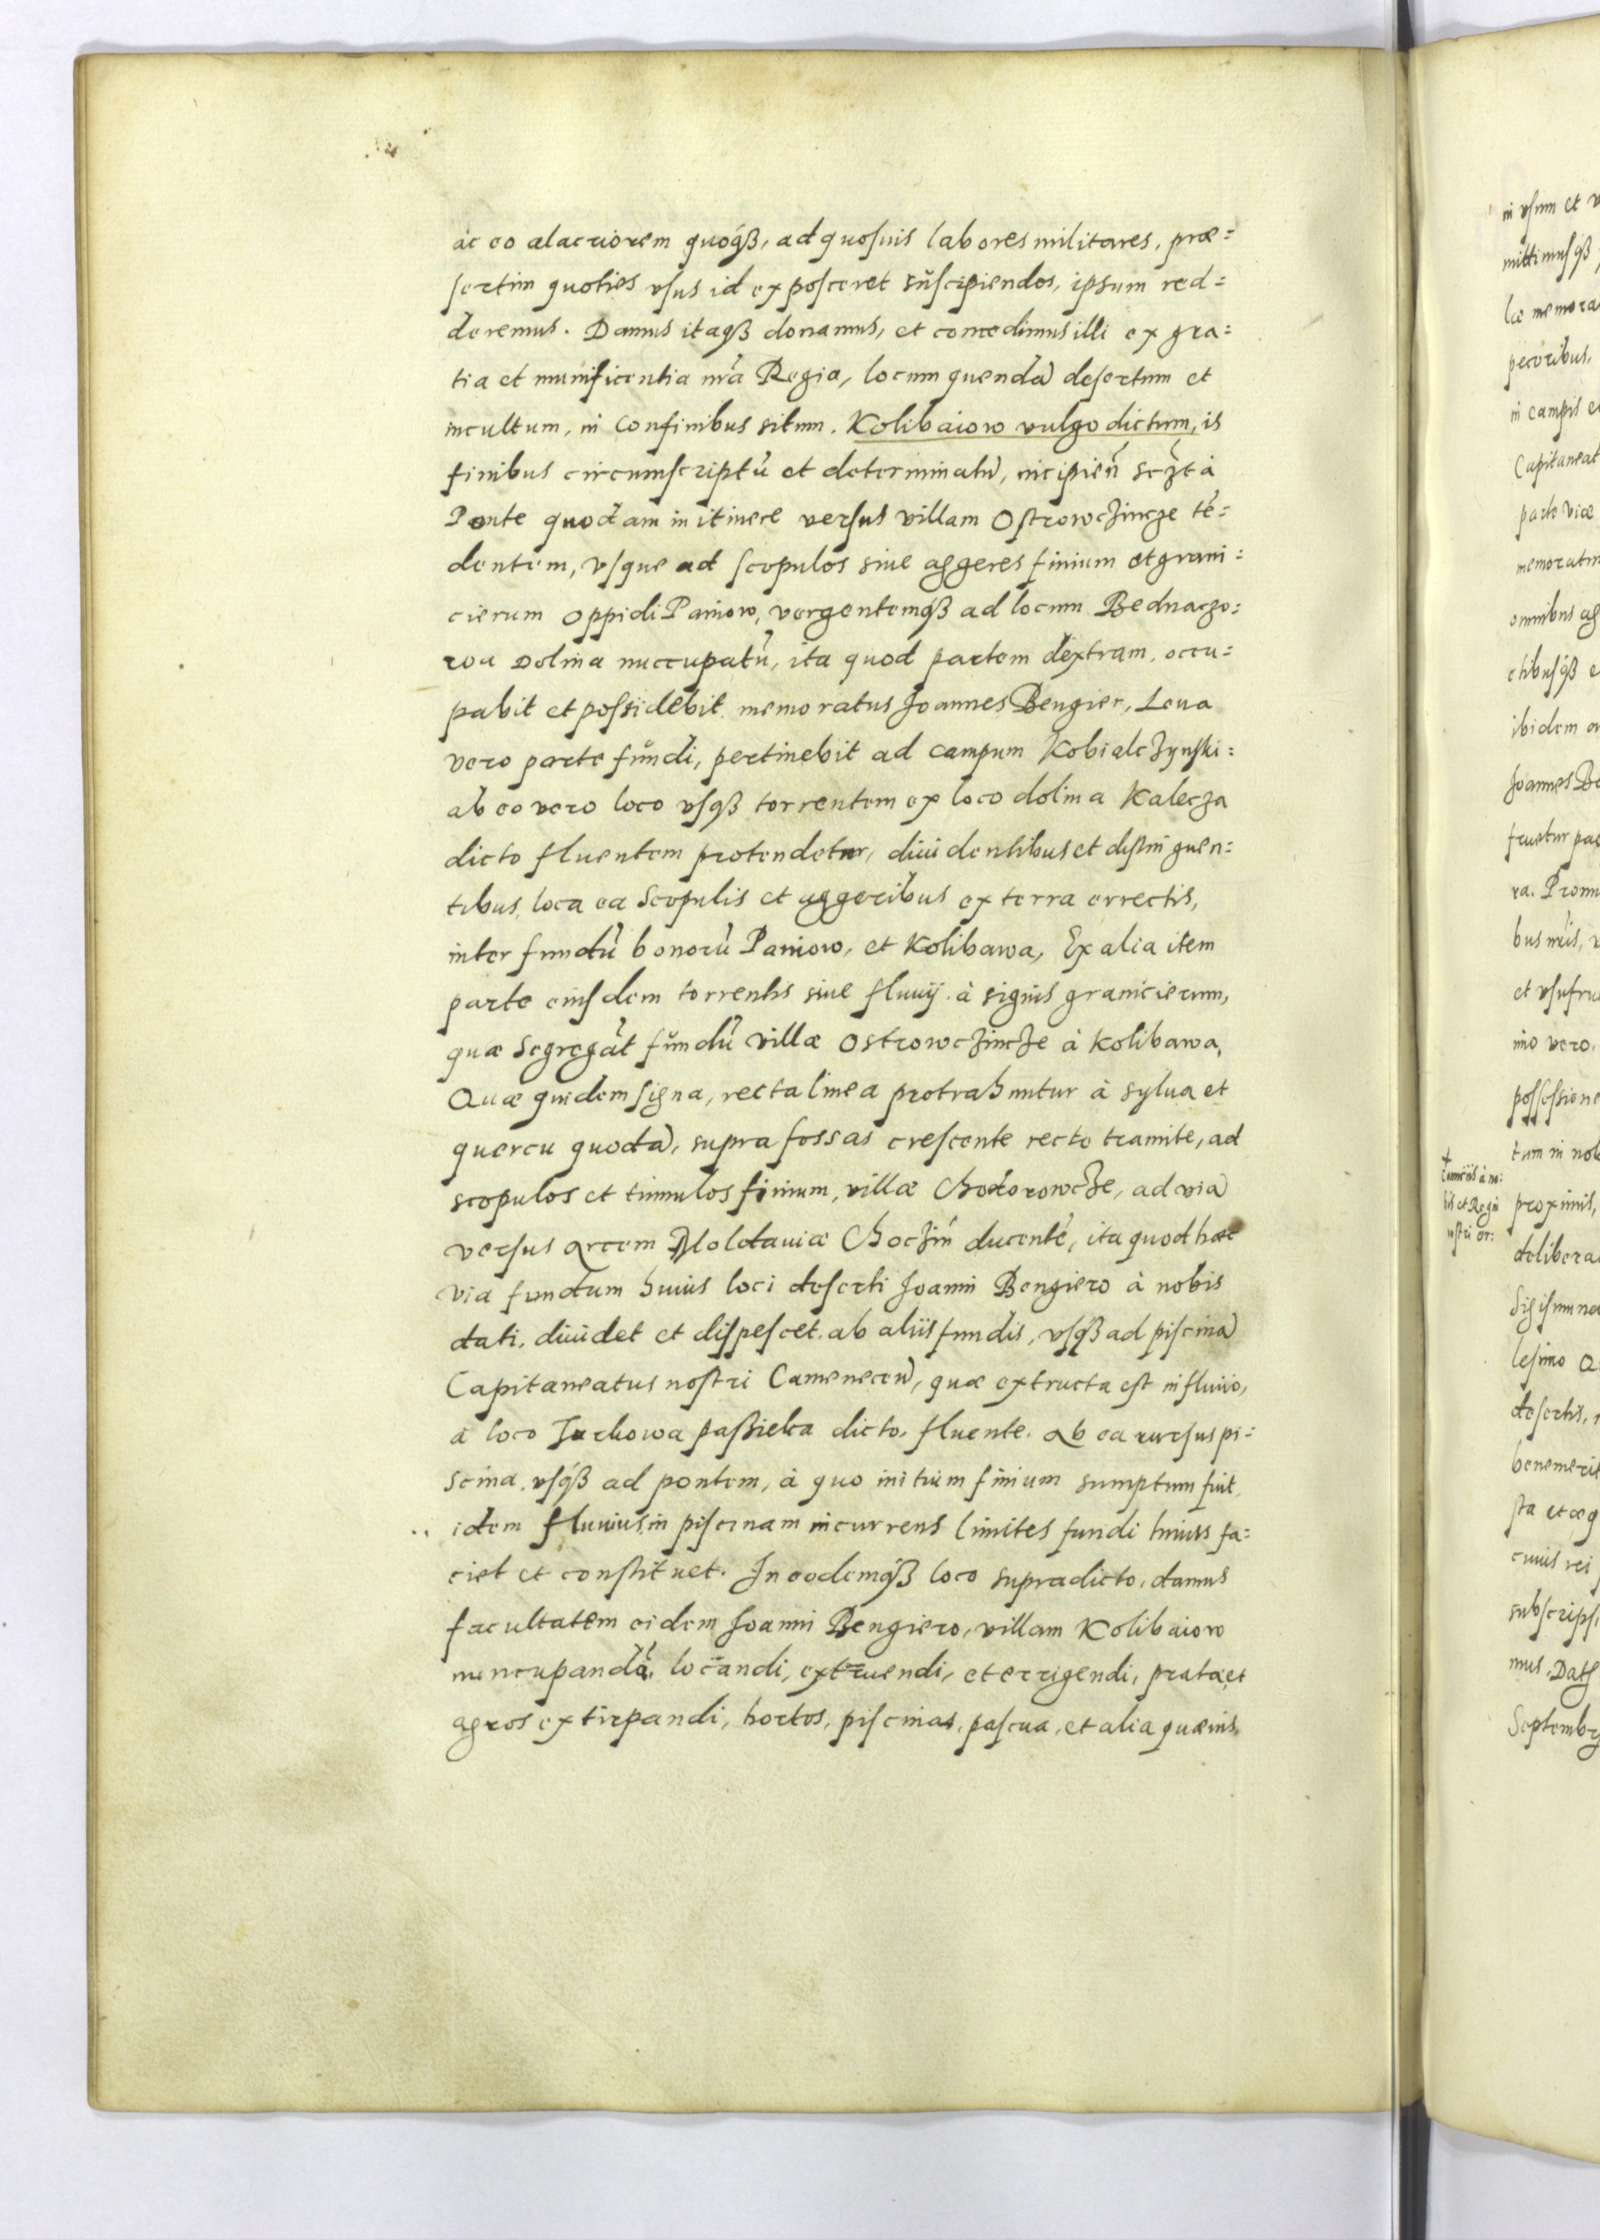 ac eo alacriorem quoq́ꝫ, ad quosuis labores militares, præ=
sertim quoties vsus id exposceret suscipiendos, ipsum red=
deremus. Damus itaqꝫ donamus, et concedimus illi ex gra=
tia et munificentia nr̃a Regia, locum quendã desertum et
incultum, in Confinibus situm. Kolibaiow vulgo dictum, is
finibus circumscriptũ et determinatũ, incipieñ sczt à
Ponte quodam in itinere versus villam Ostrowczincze tẽ=
dentem, vsque ad scopulos siue aggeres finium et grani=
cierum Oppidi Paniow, vergentemq́ꝫ ad locum Bednarzo=
wa Dolina nuccupatũ, ita quod partem dextram, occu=
pabit et possidebit memoratus Joannes Bengier, Leua
vero parte fundi, pertinebit ad campum Kobialczynski=
ab eo vero loco vsqꝫ torrentem ex loco dolina Kalecza
dicto fluentem protendetur, diuidentibus et distinguen=
tibus, loca ea Scopulis et aggeribus ex terra errectis,
inter fundũ bonorũ Paniow, et Kolibawa, Ex alia item
parte eiusdem torrentis siue fluuij à signis granicierum,
quæ Segregãt fundũ villæ Ostrowczincze à Kolibawa,
Quæ quidem signa, recta linea protrahuntur à sylua et
quercu quodã, supra fossas crescente recto tramite, ad
scopulos et tumulos finium, villæ Chodorowcze, ad viã
versus Arcem Moldauiæ Choczim̃ ducentẽ, ita quod hæc
via fundum huius loci deserti Joanni Bengiero à nobis
dati, diuidet et dispescet ab aliis fundis, vsq́ꝫ ad piscinã
Capitaneatus nostri Cameneceñ, quæ extructa est in fluuio,
à loco Jurkowa passieka dicto, fluente. Ab ea rursus pi=
scina, vsq́ꝫ ad pontem, à quo initium finium sumptum fuit,
idem fluuius in piscinam incurrens limites fundi huius fa=
ciet et constituet. In eodemq́ꝫ loco supradicto, damus
facultatem eidem Joanni Bengiero, villam Kolibaiow
nuncupandã, locandi, extruendi, et errigendi, prata, et
agros extirpandi, hortos, piscinas, pascua, et alia quæuis,
in vsum et
mittimusq́ꝫ
pecoribus,
in campis
Capitaneat
parte viæ
omnibus ag
ibidem
Joannes Be
et vsufru
imo vero,
possessione
tum in nob
proximis,
Sigismun
desertis,
benemerit
cuius rei
subscripsi
mus. Dat
Septembr